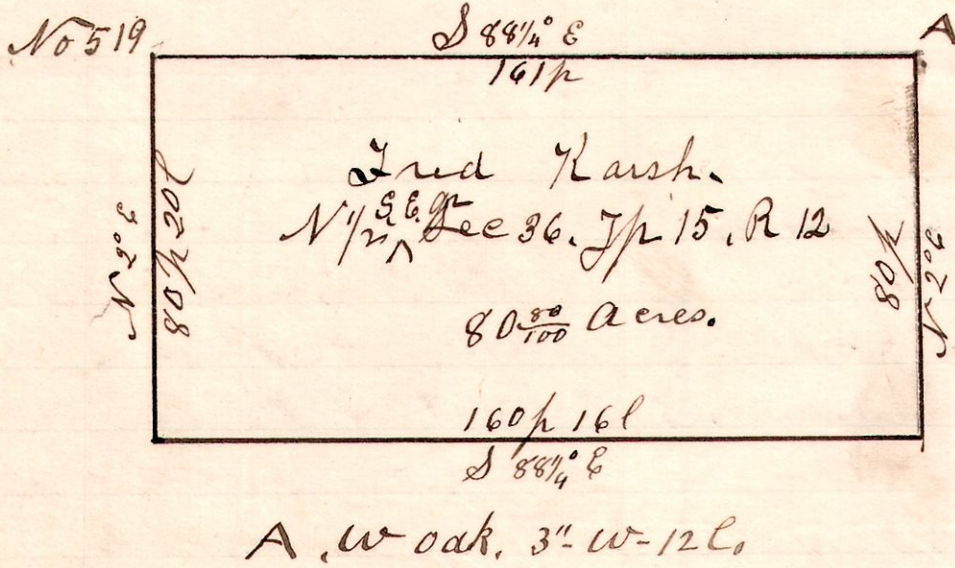 No 519
S 88 1/4° E
A
161 p
Fred Karsh.
N 1/2 S. E. qr Sec 36. Tp 15, R 12
80 80/100 Acres.
80 p 20 l
N 2° E
80 p
N 2° E
160 p 16 l
S 88 1/4° E
A. W oak. 3" - W - 12 l.